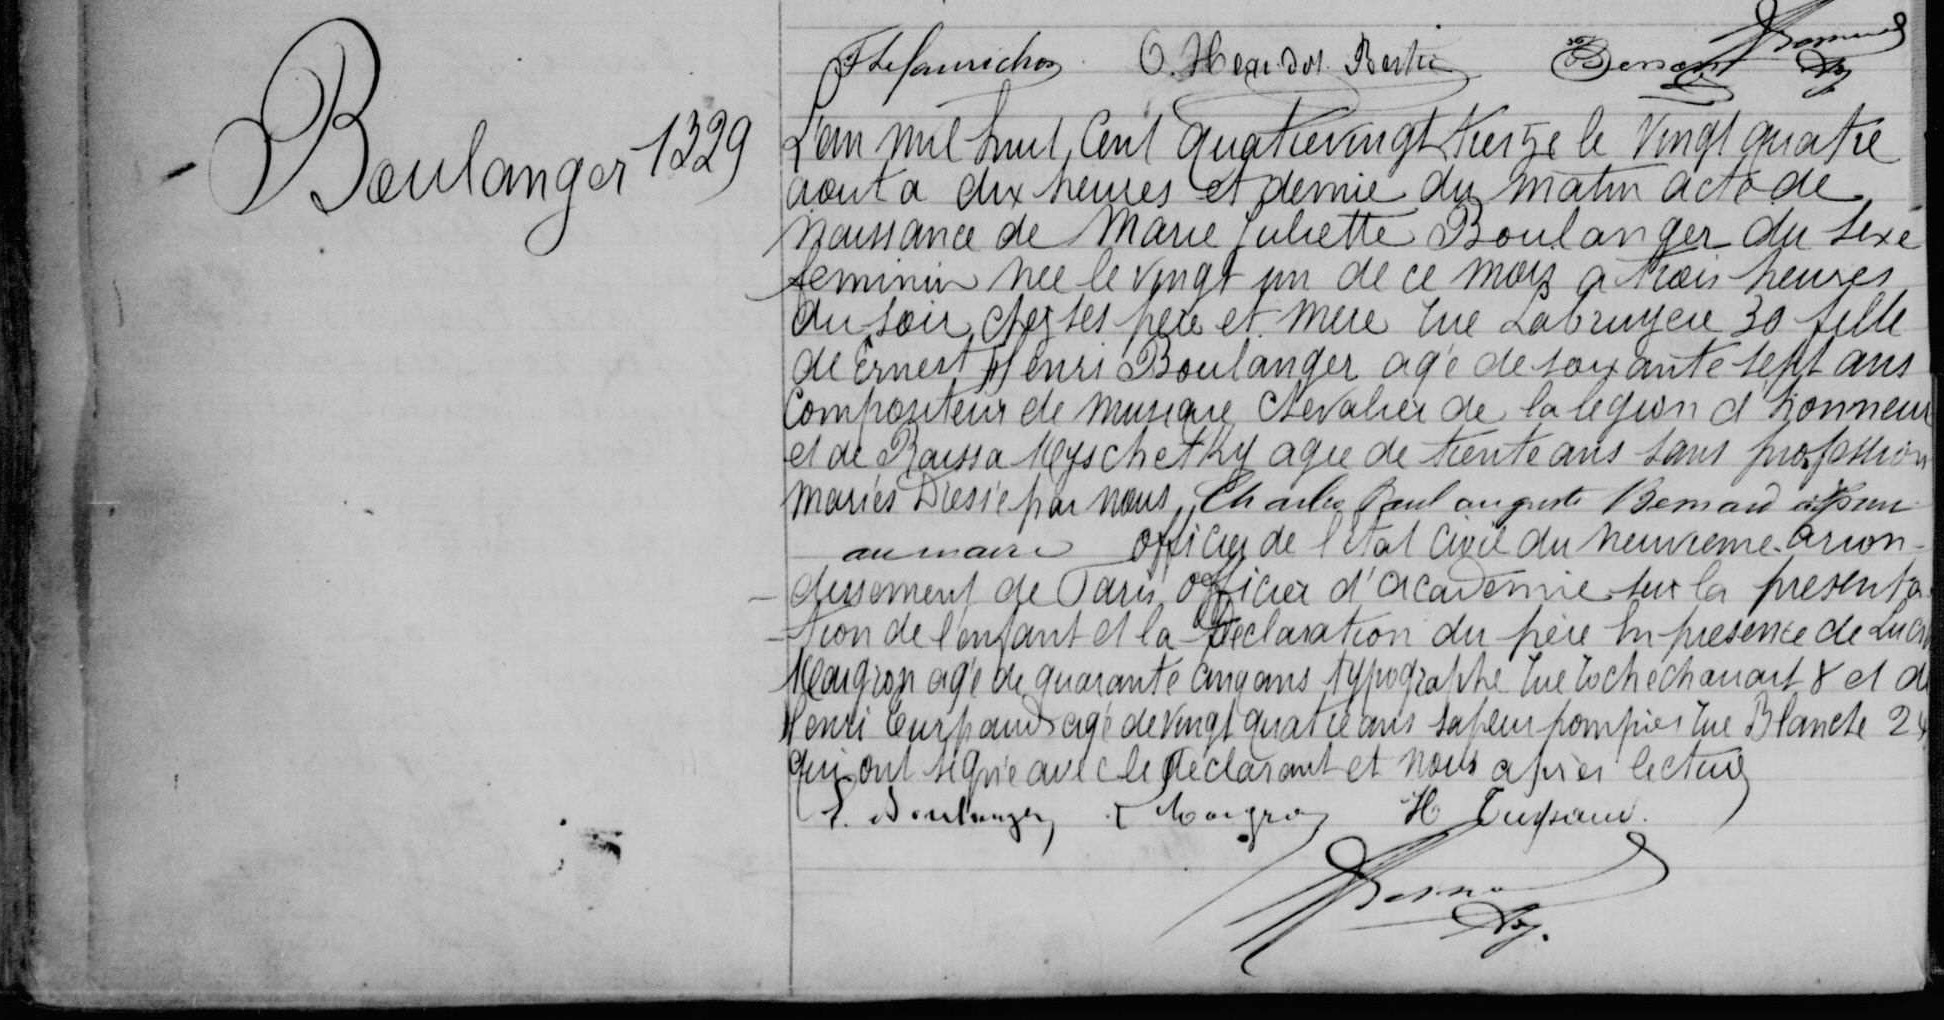 O. Heurdot Bertin
Boulanger 1329
L'an mil huit cent quatrevingt treize le vingt quatre
aout a dix heures et demie du matin acte de
naissance de Marie Juliette Boulanger du sexe
feminin née le vingt un de ce mois a trois heures
du soir chez ses père et mere rue Labruyere 30 fille
de Ernest Henri Boulanger agé de soixante sept ans
Compositeur de musique Chevalier de la legion d'honneur
et de Raissa Myschetky agée de trente ans sans profession
mariés Dressé par nous, Charles Paul auguste Bernard adjoint
au maire officier de l'état civil du neuvieme arron-
- dissement de Paris officier d'academie sur la presenta
- tion de l'enfant et la Declaration du père En presence de
Maigron agé de quarante cinq ans typographe rue rochechouart 8 et de
Henri Turpaud agé de vingt quatre ans sapeur pompier rue Blanche 24
qui ont signé avec le declarant et nous après lecture
E. Boulanger L Maigron H Turpaud.
Bernard